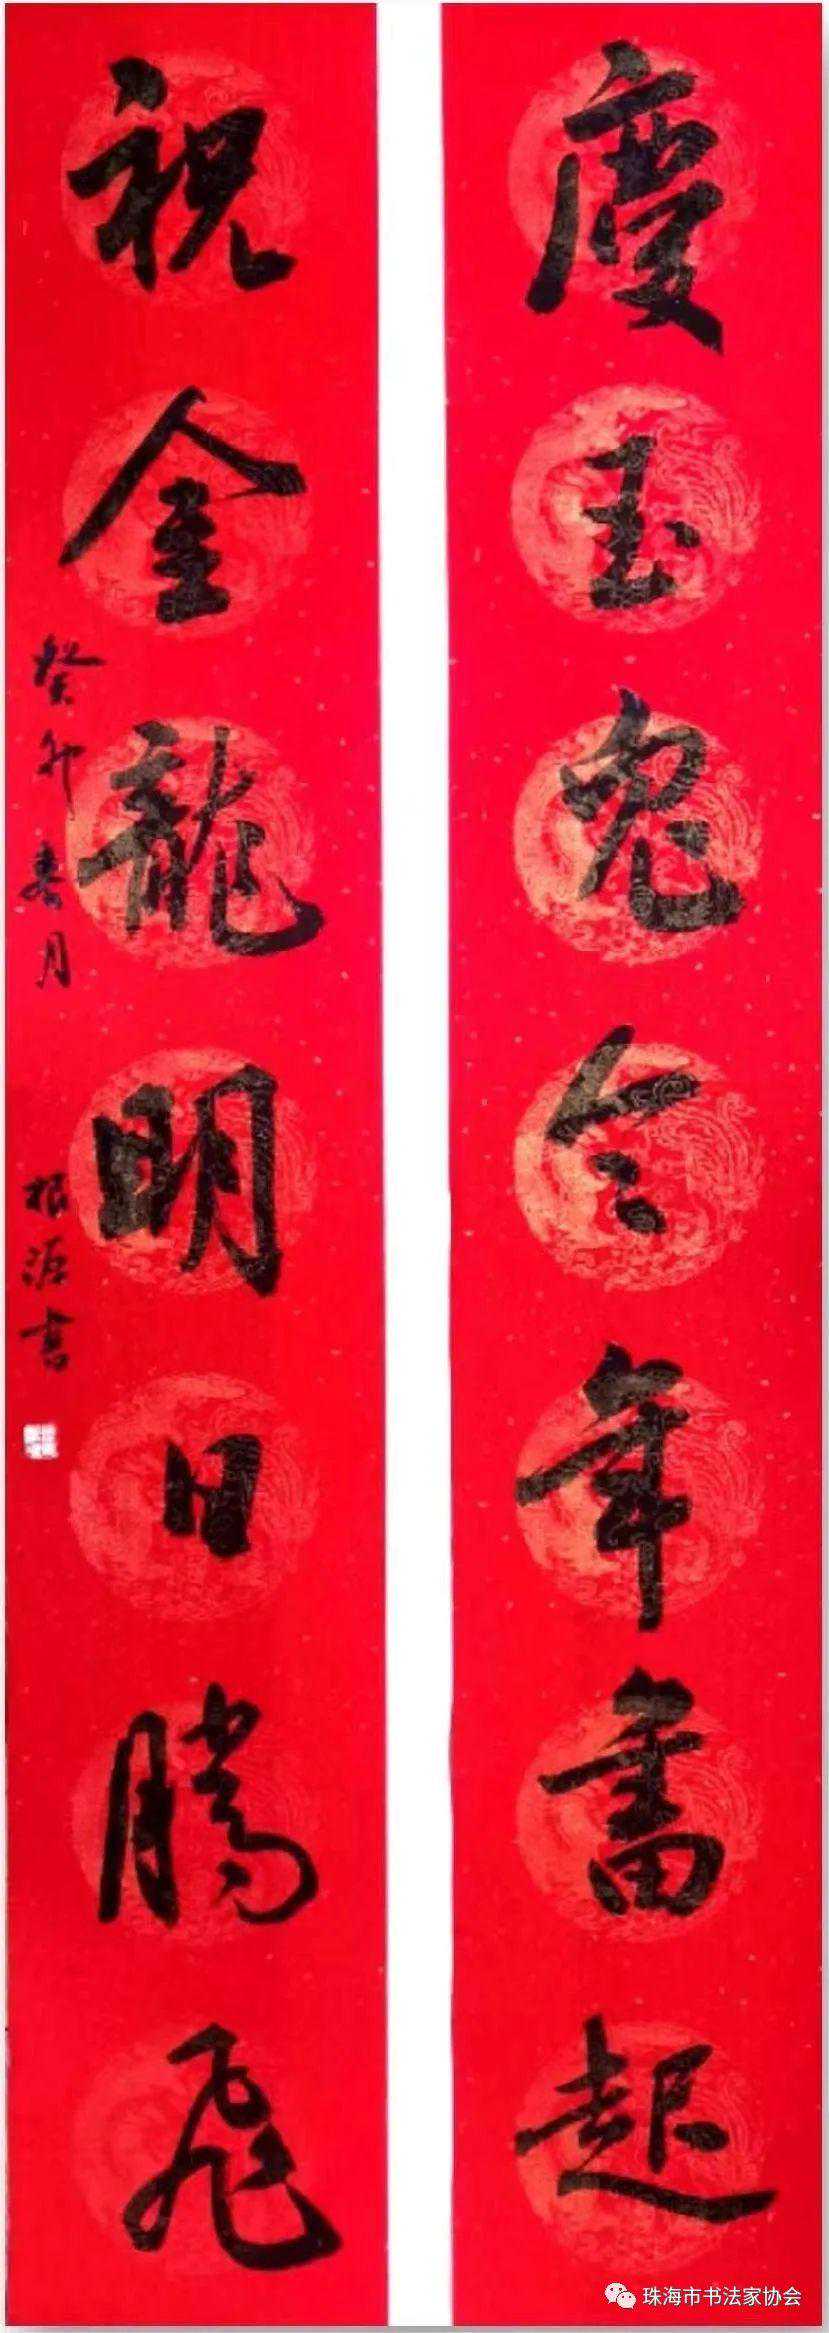 慶玉兔今年奮起
祝金龍明日騰飛
癸卯春月
根源書
珠海市书法家协会